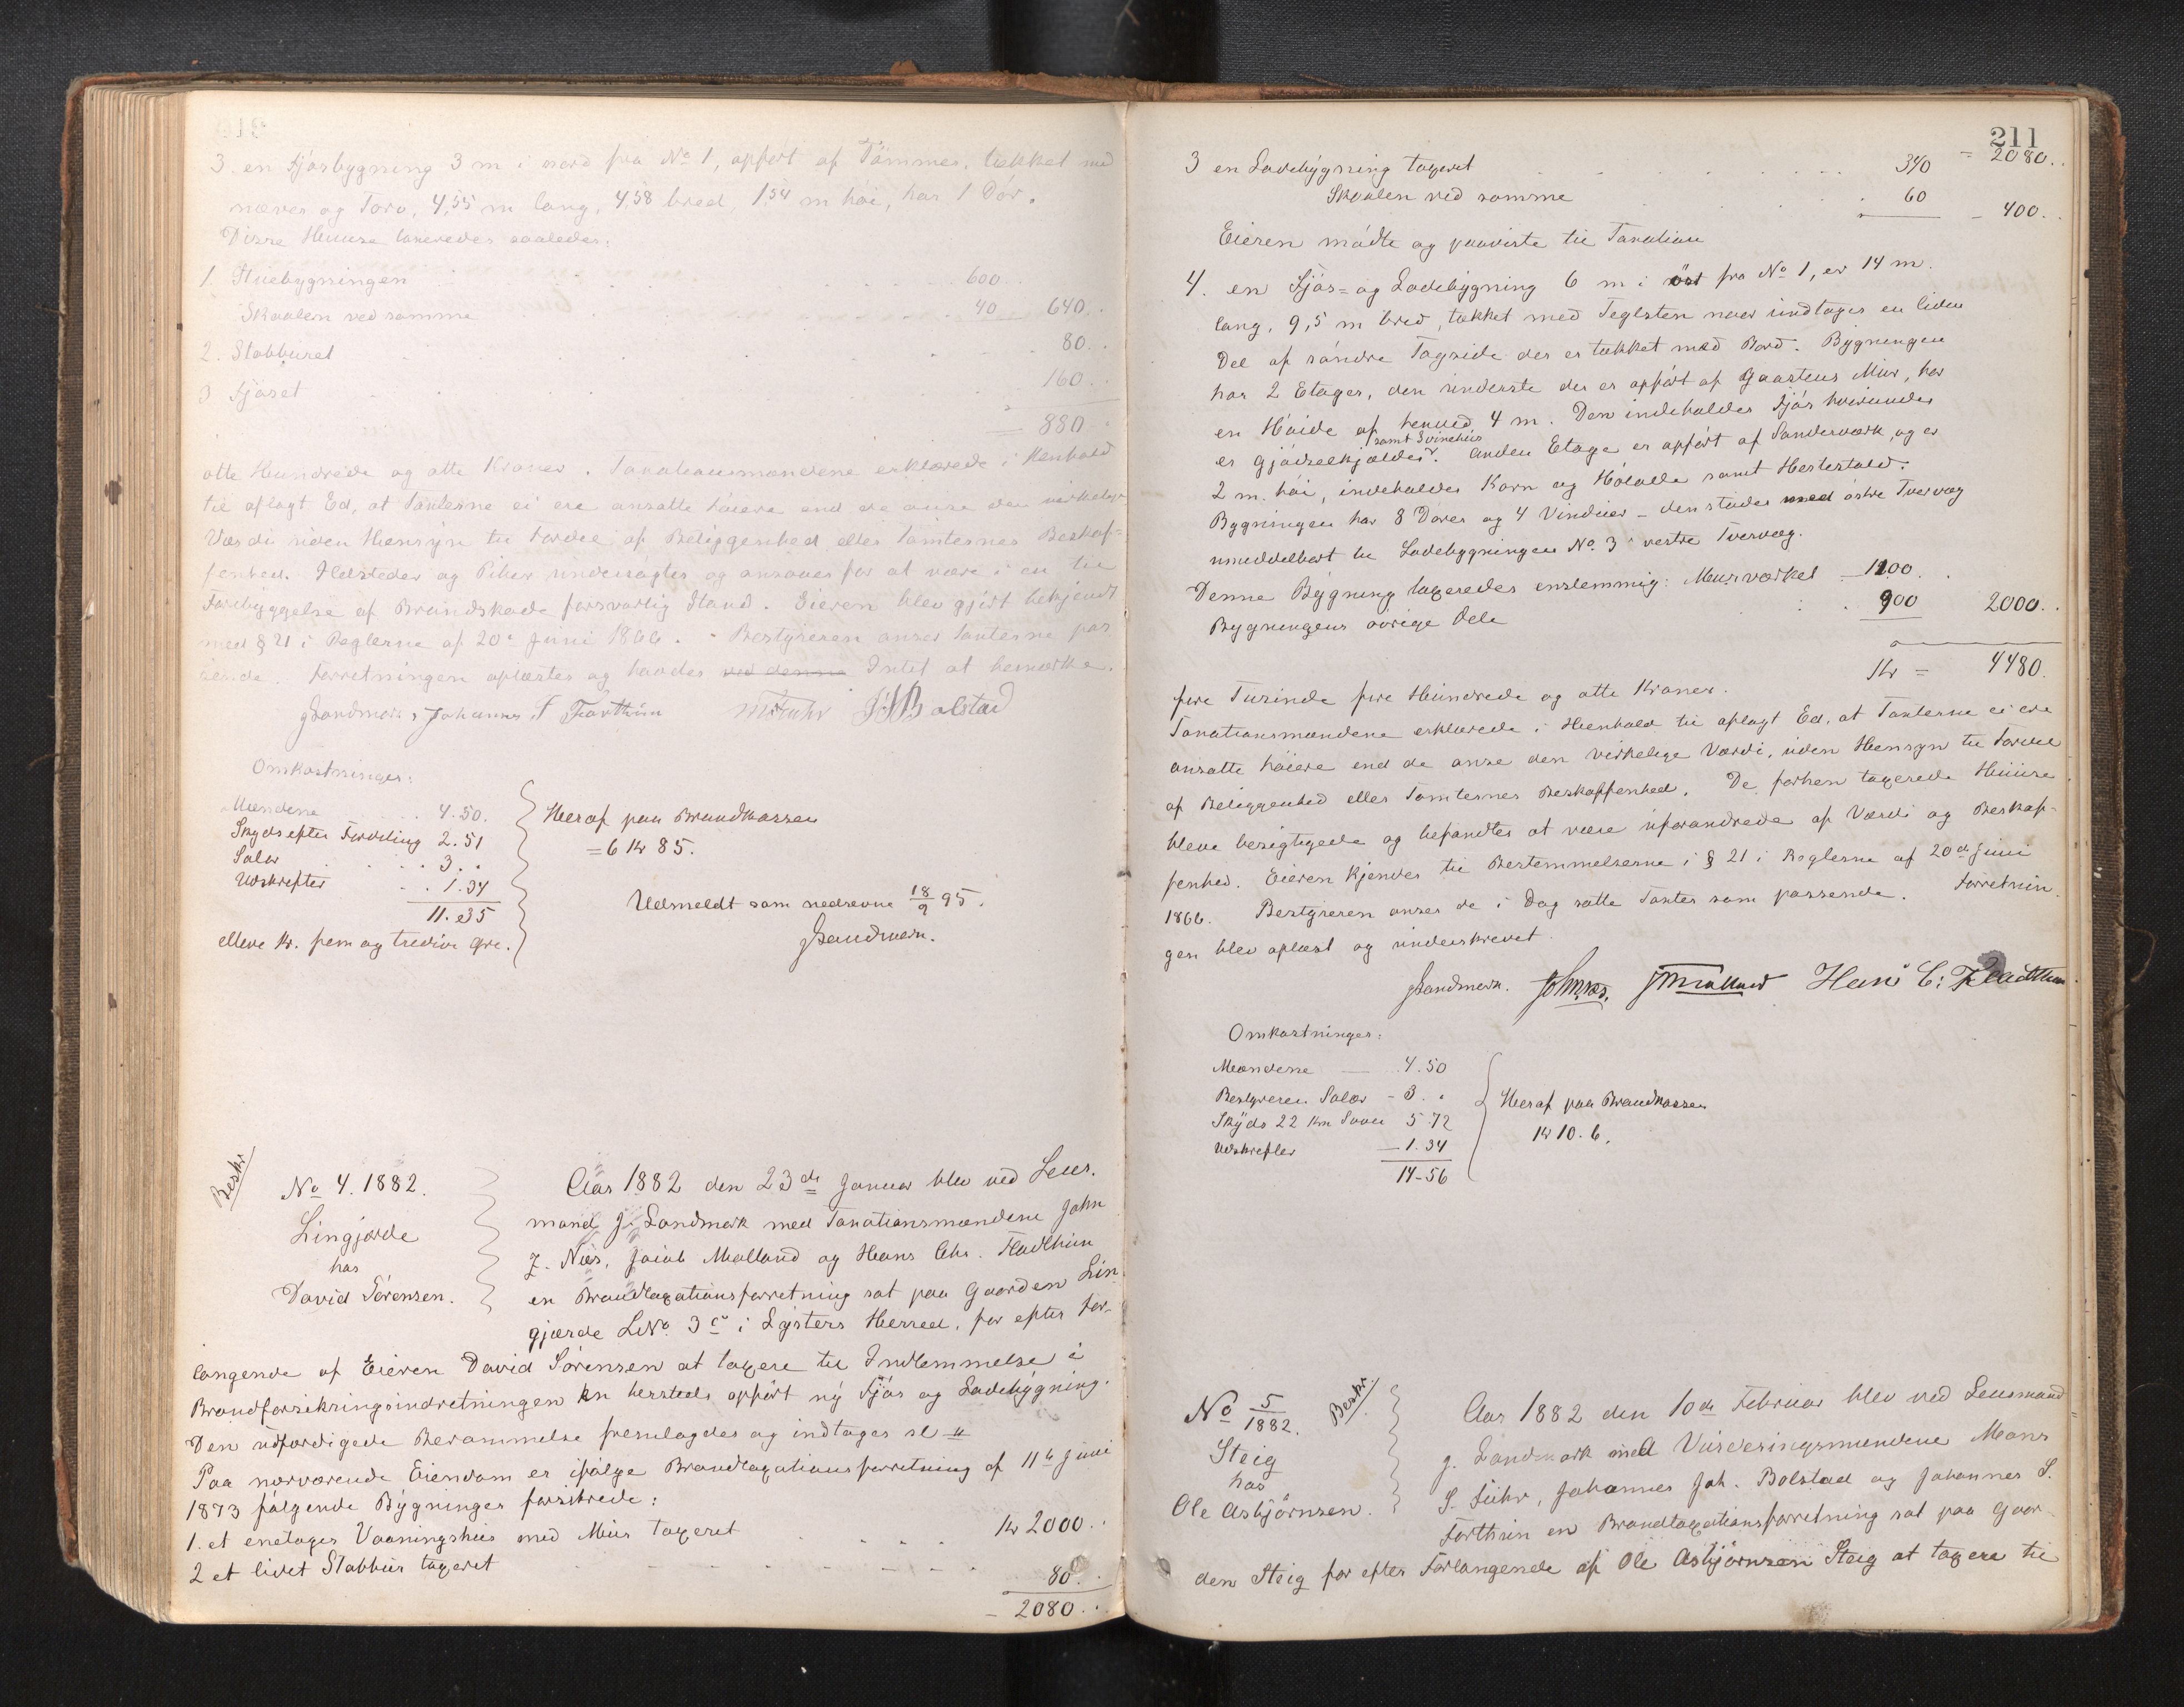 3. en Fjösbygning 3 m i nord fra No 1, opfört af Tömmer, tækket med
næver og Torv, 4,55 m lang, 4,58 bred, 1,54 m höi, har 1 Dör.
Disse Huuse taxeredes saaledes:
1. Stuebygningen 600
Skvalen ved samme 40 640..
2. Stabburet 80..
3 Fjöset 160..
880..
otte Hundrede og otte Kroner. Taxationsmændene erklærede i Henhold
til aflagt Ed, at Taxterne ei ere ansatte höiere end de anse den virkelige
Værdi uden Hensyn til Fordel af Beliggenhed eller Tomternes Beskaf-
fenhed. Ildsteder og Piber undersögtes og ansaaes for at være i en til
Forebyggelse af Brandskade forsvarlig Stand. Eieren blev gjört bekjendt
med § 21 i Reglerne af 20de Juni 1866. - Bestyreren anser Taxterne pas-
sende. Forretningen oplæstes og havdes ved denne Intet at bemærke.
JLandmark, Johannes S Forthun MSFuhr JJBolstad
Omkostninger:
Mændene 4.50.
Skyds efter Fordeling 2.51
Salær 3..
Udskrifter 1.34
11.35
elleve Kr. fem og tredive Öre.
Heraf paa Brandkassen
= 6 Kr 85.
Udmeldt som nedrevne 18/9 95.
JLandmark.
Beskr
No 4. 1882.
Lingjærde
hos
David Sörensen.
Aar 1882 den 23de Januar blev ved Lens-
mand J. Landmark med Taxationsmændene John
J. Næs, Jacob Molland og Hans Chr. Fladhun
en Brandtaxationsforretning sat paa Gaarden Lin-
gjærde LNo. 3c i Lysters Herred, for efter For-
langende af Eieren David Sörensen at taxere til Indlemmelse i
Brandforsikringsindretningen en hersteds opfört ny Fjös og Ladebygning.
Den udfærdigede Berammelse fremlagdes og indtages sl
Paa nærværende Eiendom er ifölge Brandtaxationsforretning af 11te Juni
1873 fölgende Bygninger forsikrede:
1. et enetages Vaaningshus med Muur taxeret Kr 2000..
2 et lidet Stabbur taxeret 80..
- 2080..
211
= 2080..
3 en Ladebygning taxeret 340
Skvalen ved samme 60 - 400..
Eieren mödte og paaviste til Taxation
4. en Fjös- og Ladebygning 6 m i öst fra No 1, er 14 m.
lang, 9,5 m bred, tækket med Teglsten naar undtages en liden
Del af söndre Tagside der er tækket med Bord. Bygningen
har 2 Etager, den underste der er opfört af Graastens Muur, har
en Höide af henved 4 m. Den indeholder Fjös hvorunder
er Gjödselkjælder samt Svinehus. Anden Etage er opfört af Bindværk, og er
2 m. höi, indeholder Korn og Hölade samt Hestestald.
Bygningen har 8 Döre og 4 Vinduer - den stöder med östre Tvervæg
umiddelbart til Ladebygningen No. 3's vestre Tvervæg.
Denne Bygning taxeredes enstemmig: Murværket - 1100..
Bygningens övrige Dele 900 2000..
Kr = 4480.
fire Tusinde fire Hundrede og otte Kroner.
Taxationsmændene erklærede i Henhold til aflagt Ed, at Taxterne ei ere
ansatte höiere end de anse den virkelige Værdi, uden Hensyn til Fordel
af Beliggenhed eller Tomternes Beskaffenhed. De forhen taxerede Huuse
bleve besigtigede og befandtes at være uforandrede af Værdi og Beskaf-
fenhed. Eieren kjender til Bestemmelserne i § 21 i Reglerne af 20de Juni
1866. Bestyreren anser de i Dag satte Taxter som passende. Forretnin-
gen blev oplæst og underskrevet.
JLandmark. JohnNæs. JMolland Hans C: Fladhun
Omkostninger:
Mændene 4.50
Bestyreren Salær - 3..
Skyds 22 Km 5.72
Udskrifter - 1.34
14-56
Heraf paa Brandkassen
Kr 10.6.
No 5/1882.
Beskr.
Steig
hos
Ole Asbjörnsen.
Aar 1882 den 10de Februar blev ved Lensmand
J. Landmark med Vurderingsmændene Mons
S. Fuhr, Johannes Joh. Bolstad og Johannes S.
Forthun en Brandtaxationsforretning sat paa Gaar-
den Steig for efter Forlangende af Ole Asbjörnsen Steig at taxere til